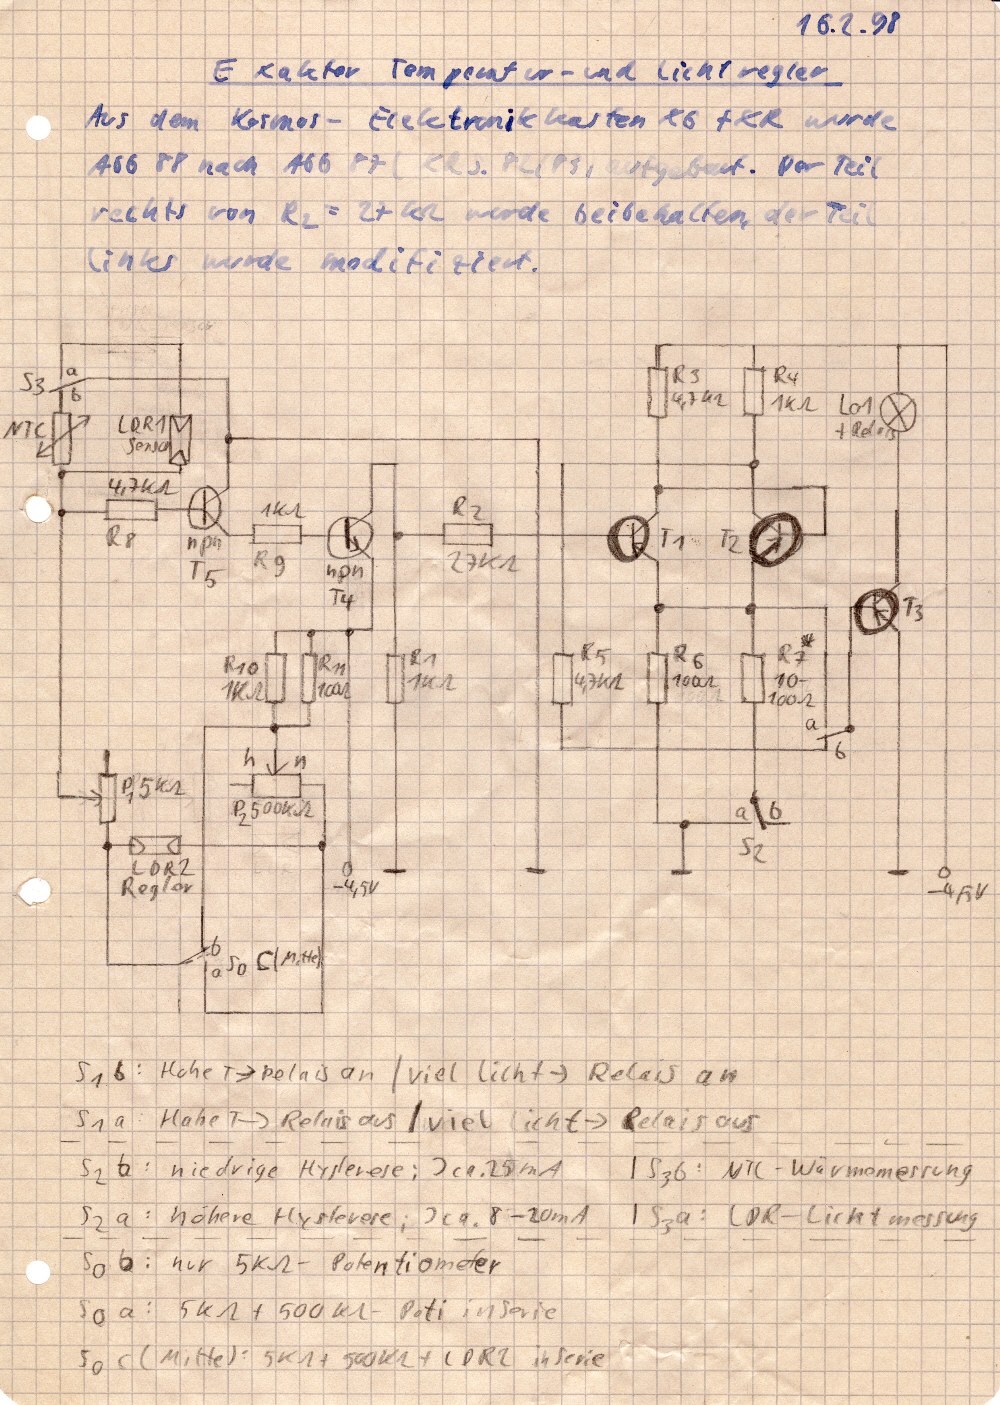 16.2.98
Exakter Temperatur- und Lichtregler
Aus dem Kosmos- Elektronikkasten XG + XR wurde
Abb 88 nach Abb 87( XR S. 82/83) aufgebaut. Der Teil
rechts von R2 = 27 kΩ wurde beibehalten, der Teil
links wurde modifiziert.
S3 a b
NTC
LDR1 Sensor
4,7KΩ
R8
npn
T5
1KΩ
R9
npn
T4
R2
27KΩ
R3
4,7KΩ
R4
1KΩ
La1
+ Relais
T1
T2
T3
R10
1KΩ
R11
100Ω
R1
1KΩ
R5
4,7KΩ
R6
100Ω
R7*
10-
100Ω
a
b
h n
P1 5KΩ
P2 500KΩ
LDR2
Regler
-4,5V
a b
S2
-4,5V
b
a S0 C (Mitte)
S1 b: Hohe T → Relais an / viel Licht → Relais an
S1 a: Hohe T → Relais aus / viel Licht → Relais aus
S2 b: niedrige Hysterese; I ca. 25 mA | S3 b: NTC - Wärmemessung
S2 a: höhere Hysterese; I ca. 8-20mA | S3 a: LDR - Lichtmessung
S0 b: nur 5KΩ - Potentiometer
S0 a: 5KΩ + 500KΩ - Poti in Serie
S0 c (Mitte): 5KΩ + 500KΩ + LDR2 in Serie